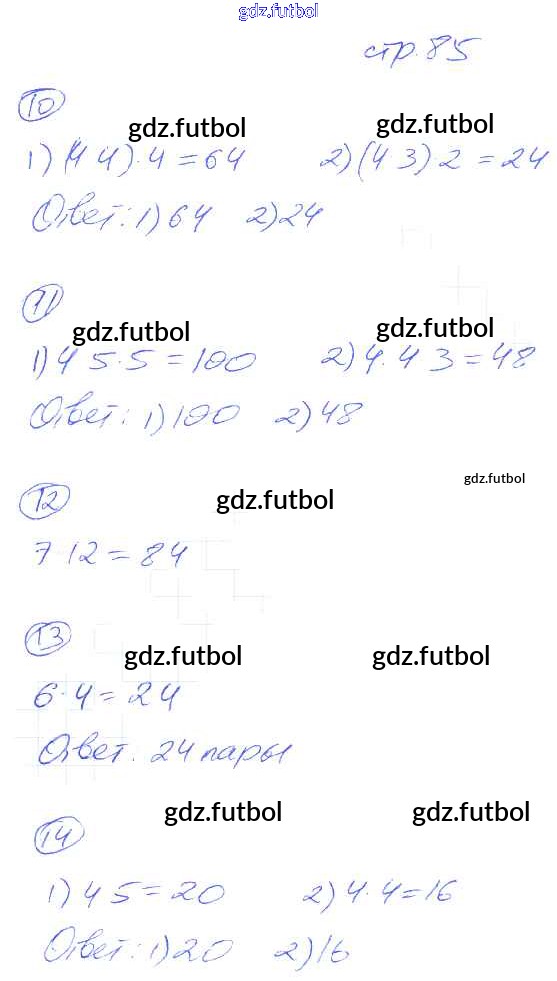 gdz.futbol
стр. 85
10
gdz.futbol gdz.futbol
1) (4 4)·4 = 64 2) (4 3) 2 = 24
Ответ: 1) 64 2) 24
11
gdz.futbol gdz.futbol
1) 4 5·5 = 100 2) 4·4 3 = 48
Ответ: 1) 100 2) 48
gdz.futbol
12 gdz.futbol
7 12 = 84
13
gdz.futbol gdz.futbol
6·4 = 24
Ответ: 24 пары
gdz.futbol gdz.futbol
14
1) 4 5 = 20 2) 4·4 = 16
Ответ: 1) 20 2) 16